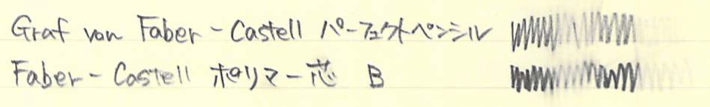 Graf von Faber-Castell パーフェクトペンシル
Faber-Castell ポリマー芯 B